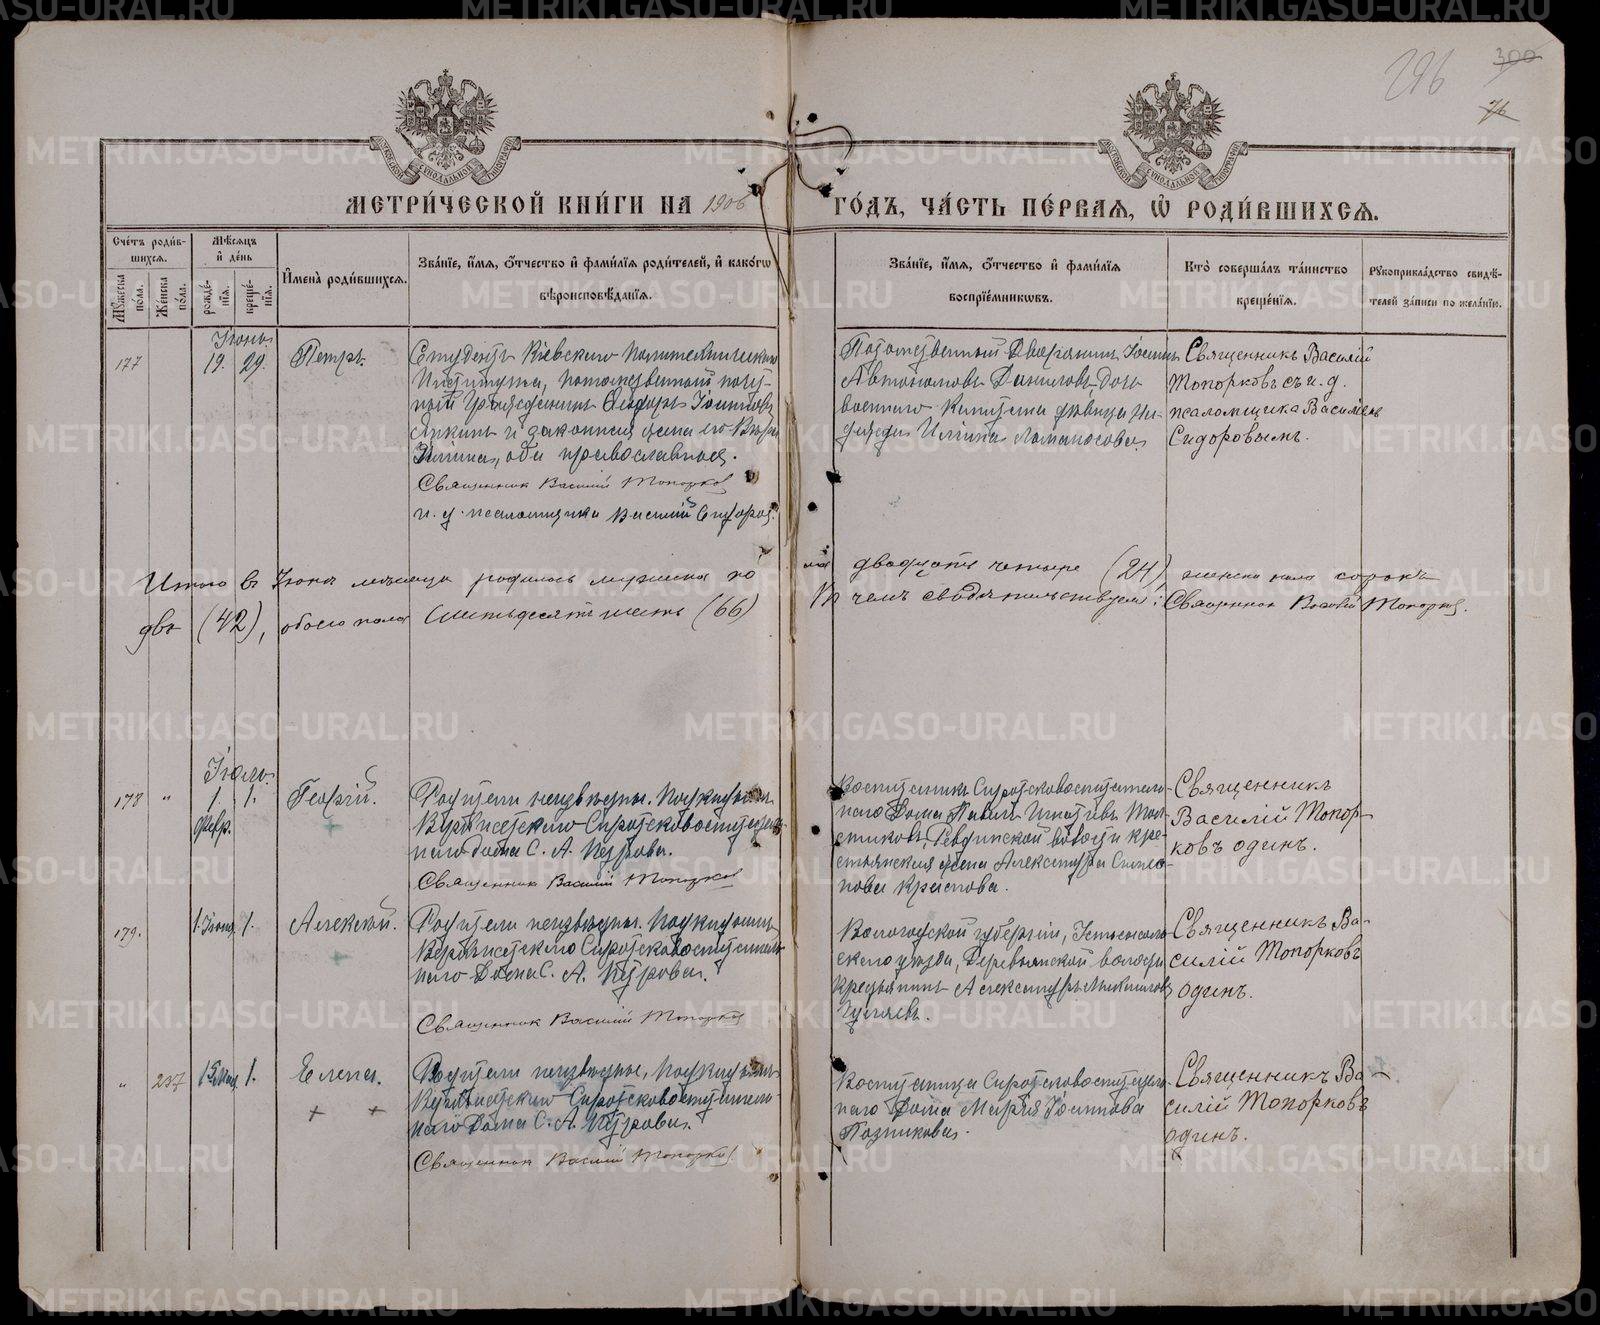 296
300
76
МЕТРИ́ЧЕСКОЙ КНИ́ГИ НА 1906 ГО́ДЪ, ЧА́СТЬ ПЕ́РВАЯ, Ѡ РОДИ́ВШИХСЯ.
Сче́тъ роди́в-
шихся.
Мѣ́сяцъ
и́ де́нь
Мꙋ́жеска по́ла.
Же́нска по́ла.
рожде́-
нїя.
креще́-
нїя.
И҆мена̀ роди́вшихся.
Зва́нїе, и҆́мя, ѻ҆́тчество и҆ фами́лїя роди́телей, и҆ како́гѡ
вѣроисповѣ́данїя.
Зва́нїе, и҆́мя, ѻ҆́тчество и҆ фами́лїя
воспрїе́мниковъ.
Кто̀ соверша́лъ та́инство
креще́нїя.
Рꙋкоприкла́дство свидѣ́-
телей за́писи по жела́нїю.
Іюнь
177
19. 29.
Петръ.
Студентъ Кіевскаго Политехническаго
Института, потомственный почет-
ный гражданинъ
и законная жена его Вѣра
оба православные.
Священникъ Василій Топорковъ
и. д. псаломщика Василій Сидоровъ.
Потомственный Дворянинъ
Автономовъ Даниловъ, дочь
военнаго Капитана дѣвица
Ильина Ломаносова.
Священникъ Василій
Топорковъ съ и. д.
псаломщика Василіемъ
Сидоровымъ.
Итого въ Іюнѣ мѣсяцѣ родилось мужеска по
ла двадцать четыре (24) женска пола сорокъ
двѣ (42), обоего пола шестьдесятъ шесть (66)
Въ чемъ свидѣтельствуемъ: Священникъ Василій Топорковъ.
Іюль
178 "
1. 1.
Февр.
Георгій.
Родители неизвѣстны. Подкидышъ
Верхъ-Исетскаго Сиротсковоспитатель-
наго дома С. А. Петрова.
Священникъ Василій Топорковъ
Воспитанникъ Сиротсковоспитатель-
наго Дома Павелъ Игнатьевъ
Ревдинской волости кре-
стьянская жена Александра
Священникъ
Василій Топор-
ковъ одинъ.
179.
1. Іюня 1.
Алексѣй.
Родители неизвѣстны. Подкидышъ
Верхъ-Исетскаго Сиротсковоспитатель-
наго Дома С. А. Петрова.
Священникъ Василій Топорковъ
Вологодской губерніи, Устьсысоль-
скаго уѣзда, Деревянской волости
крестьянинъ Александръ Михаиловъ
Священникъ Ва-
силій Топорковъ
одинъ.
" 237
15 Мая 1.
Елена.
+ +
Родители неизвѣстны, Подкидышъ
Верхъ-Исетскаго Сиротсковоспитатель-
наго Дома С. А. Петрова.
Священникъ Василій Топорковъ
Воспитанница Сиротсковоспитатель-
наго Дома Марія
Позникова.
Священникъ Ва-
силій Топорковъ
одинъ.
METRIKI.GASO-URAL.RU